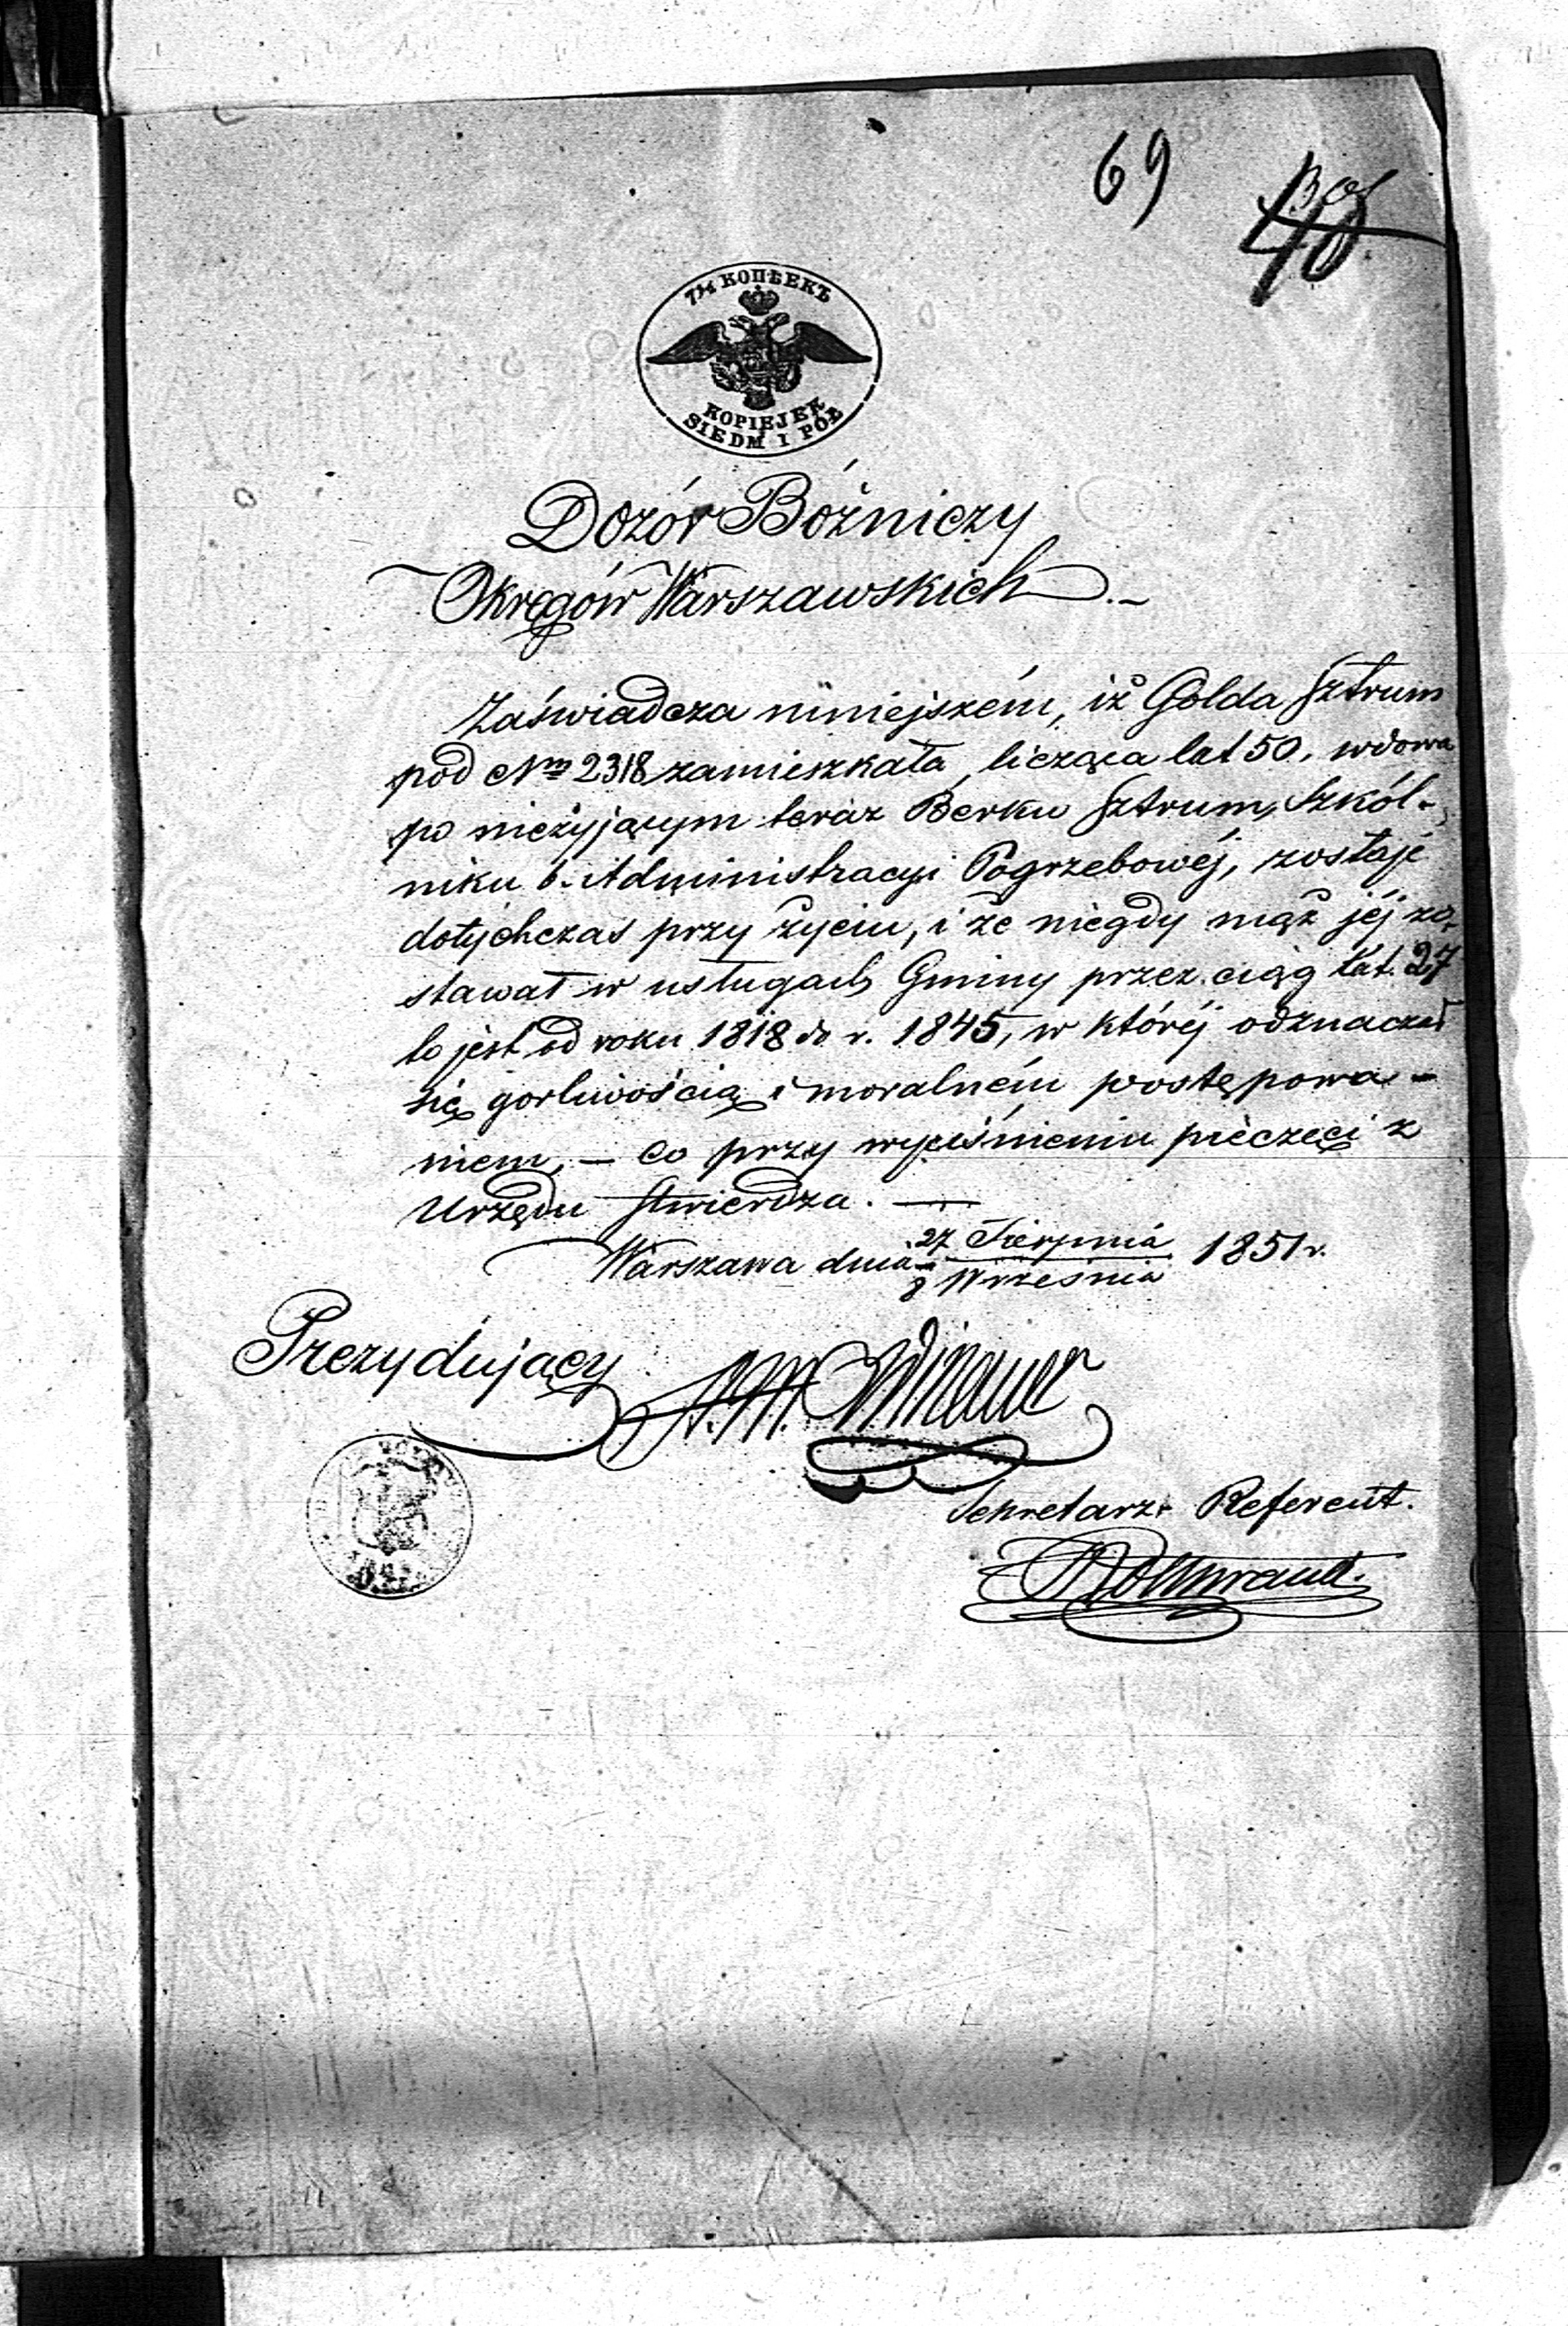 69
40
7½ КОПѢЕКЪ
KOPIEJEK
SIEDM I PÓŁ
Dozór Bóżniczy
Okręgów Warszawskich.–
Zaświadcza niniejszém, iż Golda Sztrum
pod Nrm 2318 zamieszkała, licząca lat 50, wdowa
po nieżyjącym teraz Berku Sztrum, Szkól-
niku b. Administracyi Pogrzebowéj, zostaje
dotychczas przy życiu, i że niegdy mąż jéj zo-
stawał w usługach Gminy przez ciąg lat 27
to jest od roku 1818 do r. 1845, w któréj odznaczał
się gorliwością i moralném postępowa-
niem, – co przy wyciśnieniu pieczęci z
Urzędu stwierdza. —
Warszawa dnia 27 Sierpnia 1851 r.
8 Września
Prezydujący M. Winawer
Sekretarz Referent.